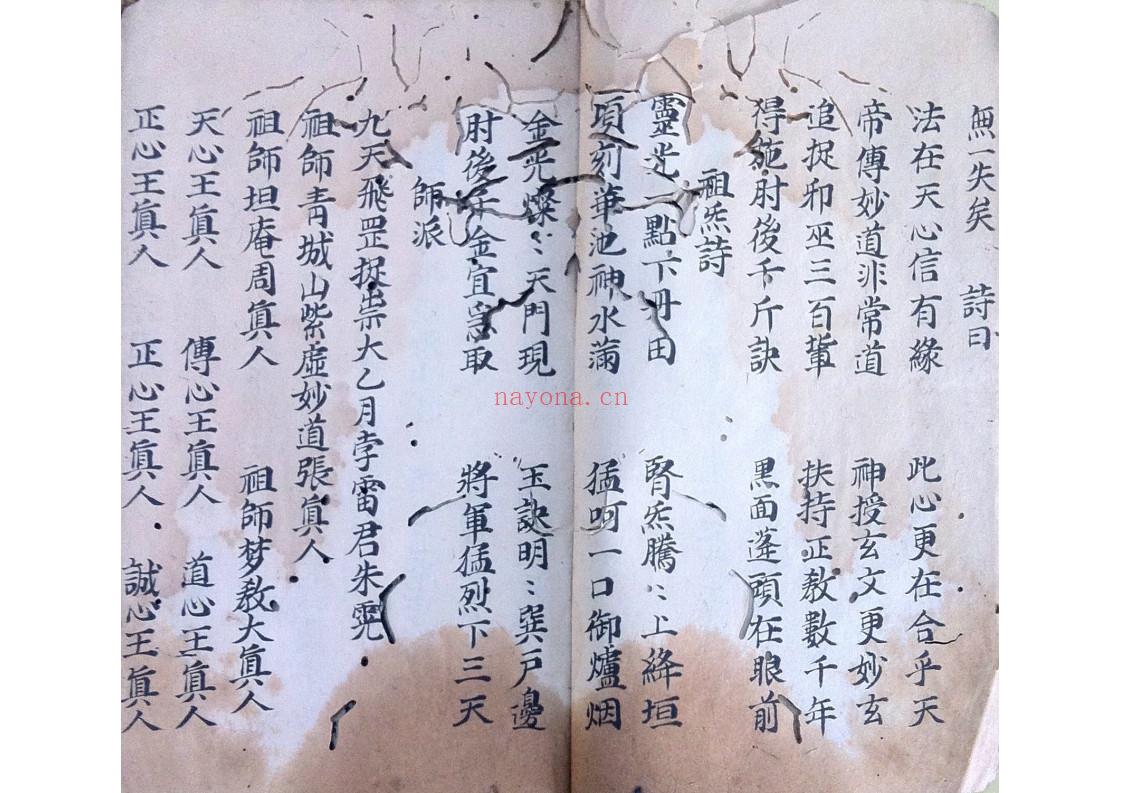 無一失矣 詩曰
法在天心信有緣 此心更在合乎天
帝傳妙道非常道 神授玄文更妙玄
追捉卯巫三百輩 扶持正教數千年
得施肘後千斤訣 黑面蓬頭在眼前
祖炁詩
靈光一點下丹田 腎炁騰〻上絳垣
頃刻華池神水滿 猛呵一口御爐烟
金光燦〻天門現 玉訣明〻巽戶邊
肘後 金宜急取 將軍猛烈下三天
師派
九天飛罡捉祟大乙月孛雷君朱
祖師青城山紫虛妙道張眞人
祖師坦庵周眞人 祖師梦教大眞人
天心王眞人 傳心王眞人 道心王眞人
正心王眞人 正心王眞人 誠心王眞人
nayona.cn